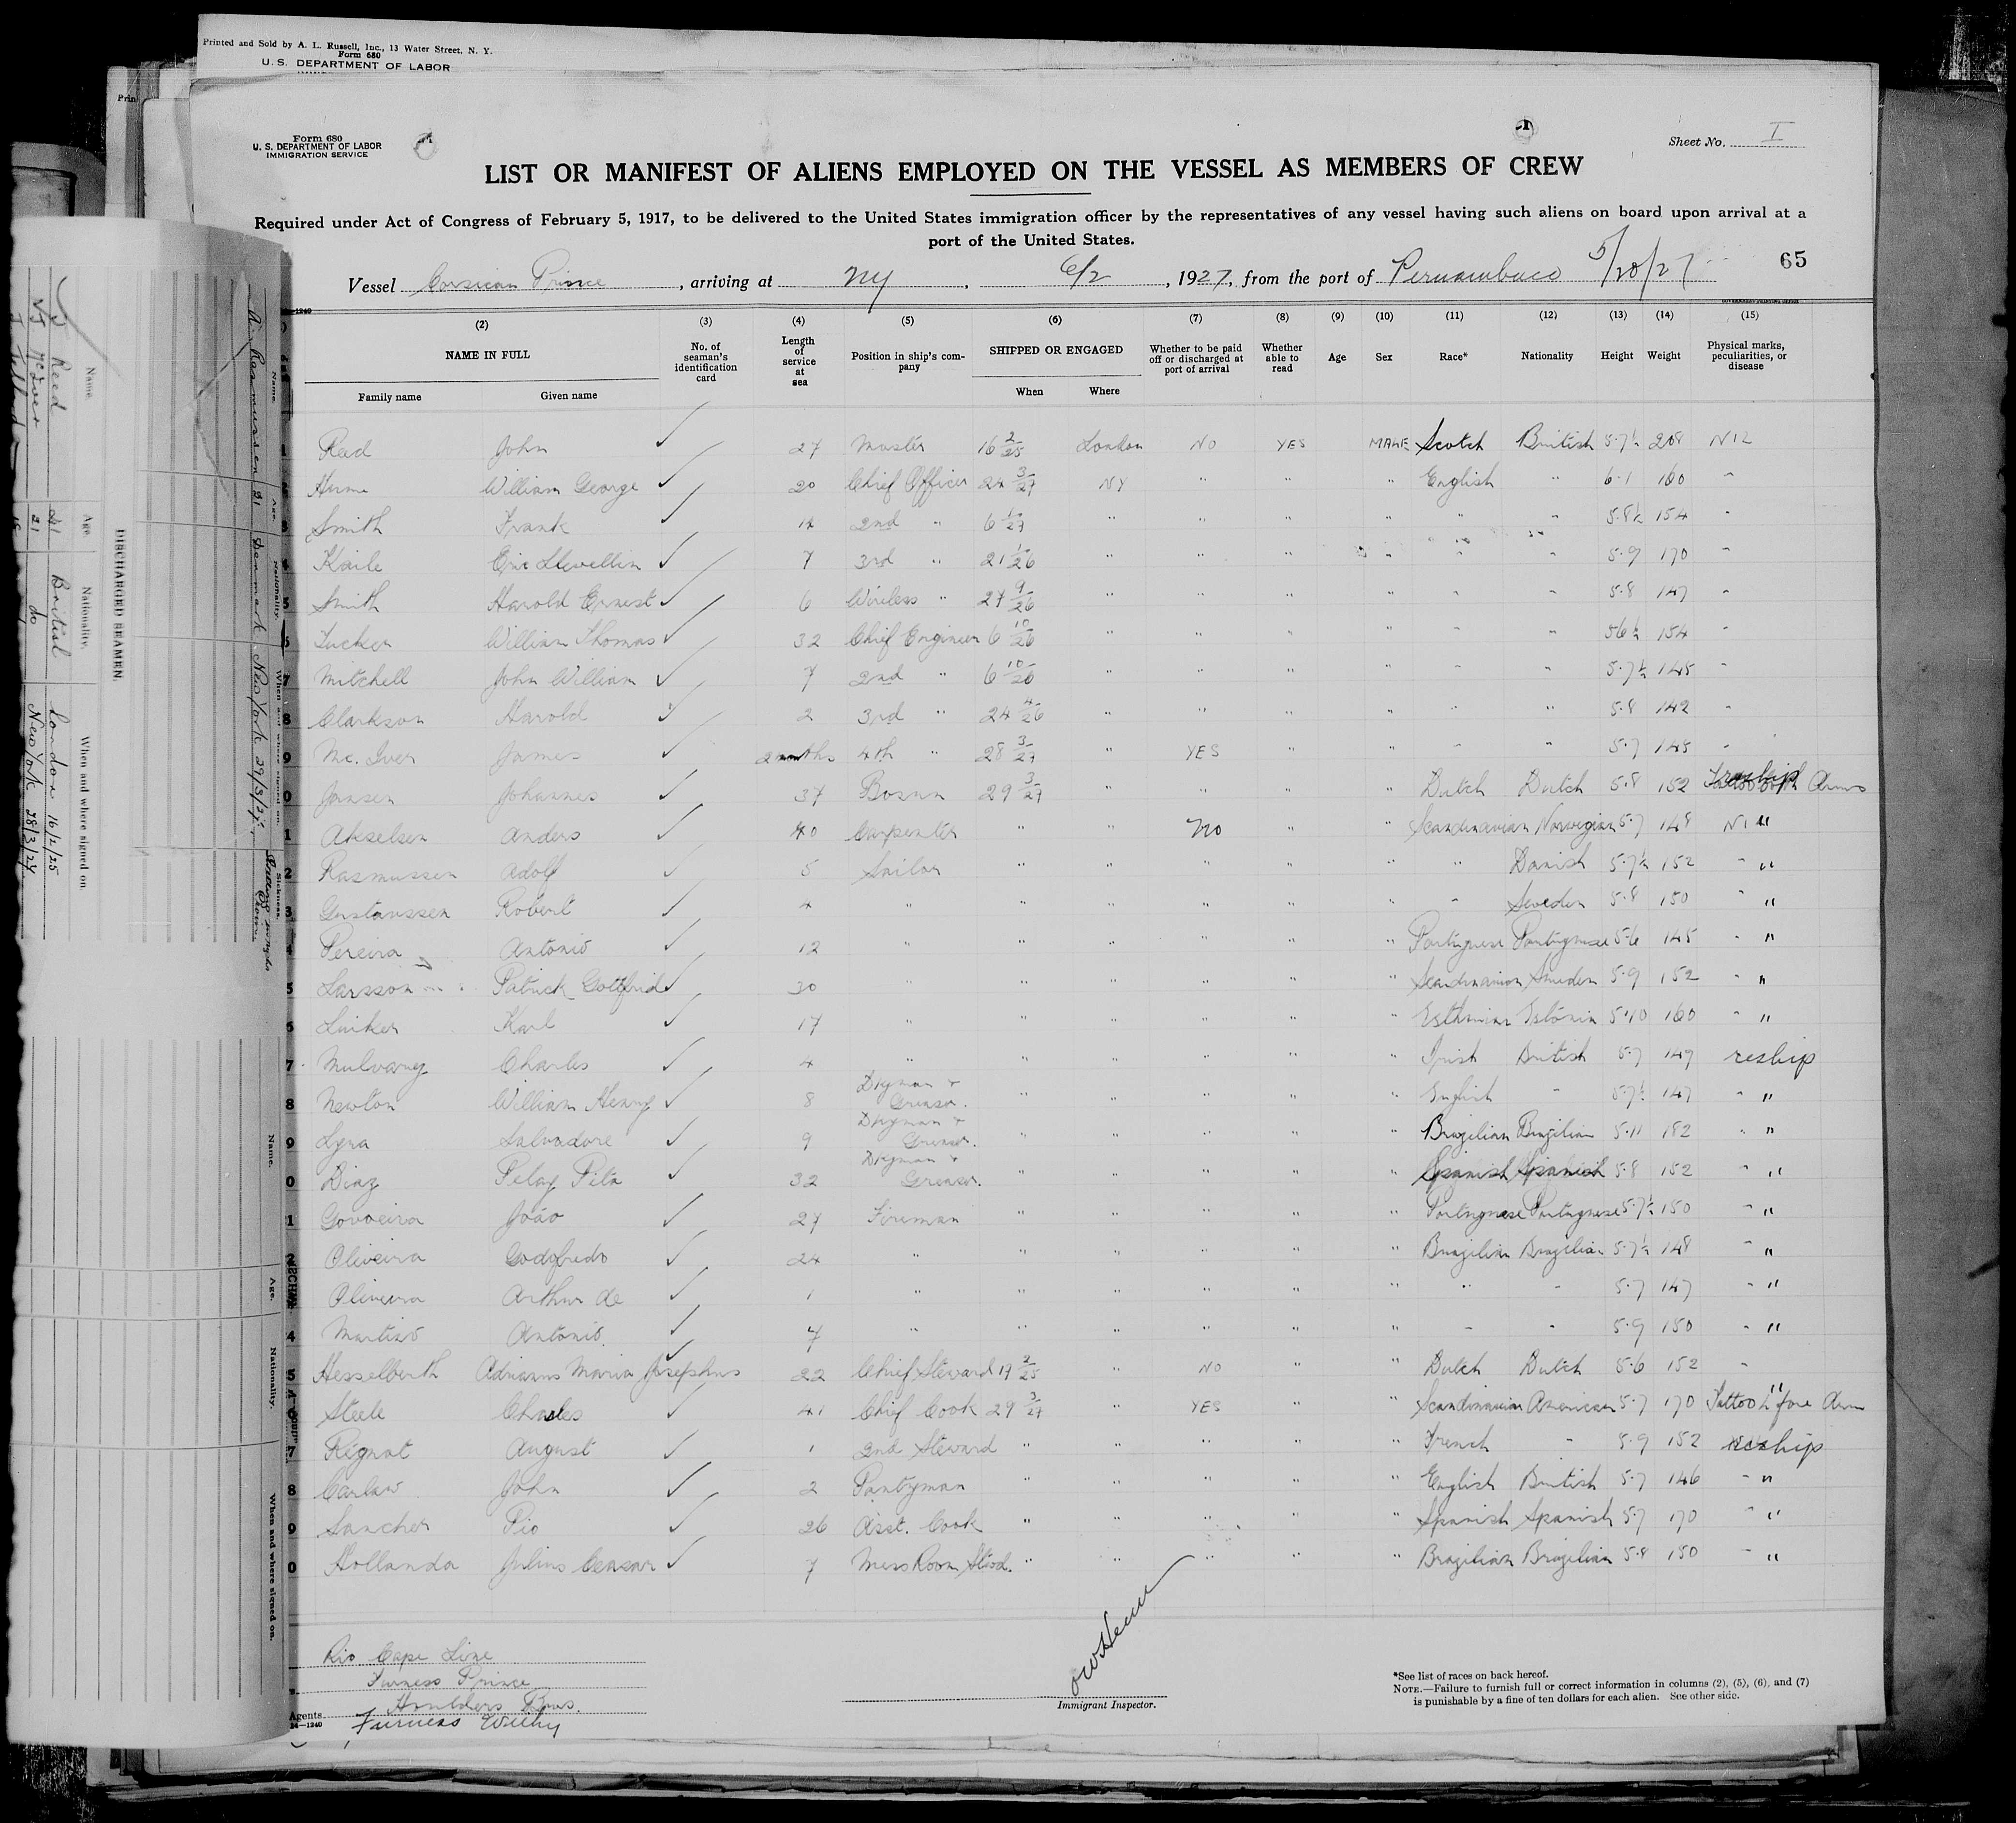 Printed and Sold by A. L. Russell, Inc., 13 Water Street, N. Y.
Form 680
U. S. DEPARTMENT OF LABOR
Prin
Form 680
U. S. DEPARTMENT OF LABOR
IMMIGRATION SERVICE
Sheet No. I
LIST OR MANIFEST OF ALIENS EMPLOYED ON THE VESSEL AS MEMBERS OF CREW
Required under Act of Congress of February 5, 1917, to be delivered to the United States immigration officer by the representatives of any vessel having such aliens on board upon arrival at a
port of the United States.
65
Vessel Corsican Prince, arriving at NY, 6/2, 1927, from the port of Pernambuco 5/20/27
(2) (3) (4) (5) (6) (7) (8) (9) (10) (11) (12) (13) (14) (15)
NAME IN FULL
Family name Given name
No. of seaman's identification card
Length of service at sea
Position in ship's company
SHIPPED OR ENGAGED
When Where
Whether to be paid off or discharged at port of arrival
Whether able to read
Age Sex Race* Nationality Height Weight
Physical marks, peculiarities, or disease
1 Read John ✓ 27 Master 16 2/25 London NO YES MALE Scotch British 5·7½ 208 NIL
Hume William George ✓ 20 Chief Officer 24 3/27 NY " " " English " 6·1 160 "
3 Smith Frank ✓ 14 2nd " 6 1/27 " " " " " " 5·8½ 154 "
4 Kaile Eric Llewellin ✓ 7 3rd " 21 1/26 " " " " " " 5·9 170 "
5 Smith Harold Ernest ✓ 6 Wireless " 27 9/26 " " " " " " 5·8 147 "
6 Tucker William Thomas ✓ 32 Chief Engineer 6 10/26 " " " " " " 5·6½ 154 "
7 Mitchell John William ✓ 7 2nd " 6 10/26 " " " " " " 5·7½ 145 "
8 Clarkson Harold ✓ 2 3rd " 24 4/26 " " " " " " 5·8 142 "
9 Mc. Iver James ✓ 2 mnths 4th " 28 3/27 " YES " " " " 5·7 145 "
0 Jansen Johannes ✓ 37 Bosun 29 3/27 " " " " Dutch Dutch 5·8 152 Tattoo both Arms reship
1 Akselsen Anders ✓ 40 Carpenter " " No " " Scandinavian Norwegian 5·7 148 NI "
2 Rasmussen Adolf ✓ 5 Sailor " " " " " " Danish 5·7½ 152 " "
3 Gustavssen Robert ✓ 4 " " " " " " " Sweden 5·8 150 " "
4 Pereira Antonio ✓ 12 " " " " " " Portuguese Portuguese 5·6 145 " "
5 Larsson Patrick Gottfrid ✓ 30 " " " " " " Scandinavian Sweden 5·9 152 " "
6 Luiker Karl ✓ 17 " " " " " " Esthonian Estonia 5·10 160 " "
7 Mulvany Charles ✓ 4 " " " " " " Irish British 5·7 149 reship
8 Newton William Henry ✓ 8 Dkyman + Greaser. " " " " " English " 5·7½ 147 " "
9 Lyra Salvadore ✓ 9 Dkyman + Greaser. " " " " " Brazilian Brazilian 5·11 182 " "
0 Diaz Pelay Pita ✓ 32 Dkyman + Greaser. " " " " " Spanish Spanish 5·8 152 " "
1 Govoeira João ✓ 27 Fireman " " " " " Portuguese Portuguese 5·7½ 150 " "
2 Oliveira Godofredo ✓ 24 " " " " " " Brazilian Brazilian 5·7½ 148 " "
Oliveira Arthur de ✓ 1 " " " " " " " " 5·7 147 " "
4 Martins Antonio. ✓ 7 " " " " " " " " 5·9 150 " "
5 Hesselberth Adrianus Maria Josephus 22 Chief Steward 19 2/25 " NO " " Dutch Dutch 5·6 152 "
Steele Charles ✓ 41 Chief Cook 29 3/27 " YES " " Scandinavian American 5·7 170 Tattoo L fore Arm "
7 Regnat August ✓ 1 2nd Steward " " " " " French " 5·9 152 reship
8 Carlaw John ✓ 2 Pantryman " " " " " English British 5·7 146 " "
9 Sancher Pio ✓ 26 Asst. Cook " " " " " Spanish Spanish 5·7 170 " "
0 Hollanda Julius Ceasar ✓ 7 Mess Room Stwd. " " " " " Brazilian Brazilian 5·8 150 " "
Rio Cape Line
Furness Prince
Houlders Bros.
Agents Furness Withy
14—1240
Immigrant Inspector.
*See list of races on back hereof.
NOTE.—Failure to furnish full or correct information in columns (2), (5), (6), and (7)
is punishable by a fine of ten dollars for each alien. See other side.
DISCHARGED SEAMEN.
Name. Age. Nationality. When and where signed on.
J Reed 41 British London 16/2/25
McIver 21 do New York 28/3/27
Name. Age. Nationality. When and where signed on. Sickness.
A. Rasmussen 21 Denmark New York 29/3/27
Name. Age. Nationality. When and where signed on.